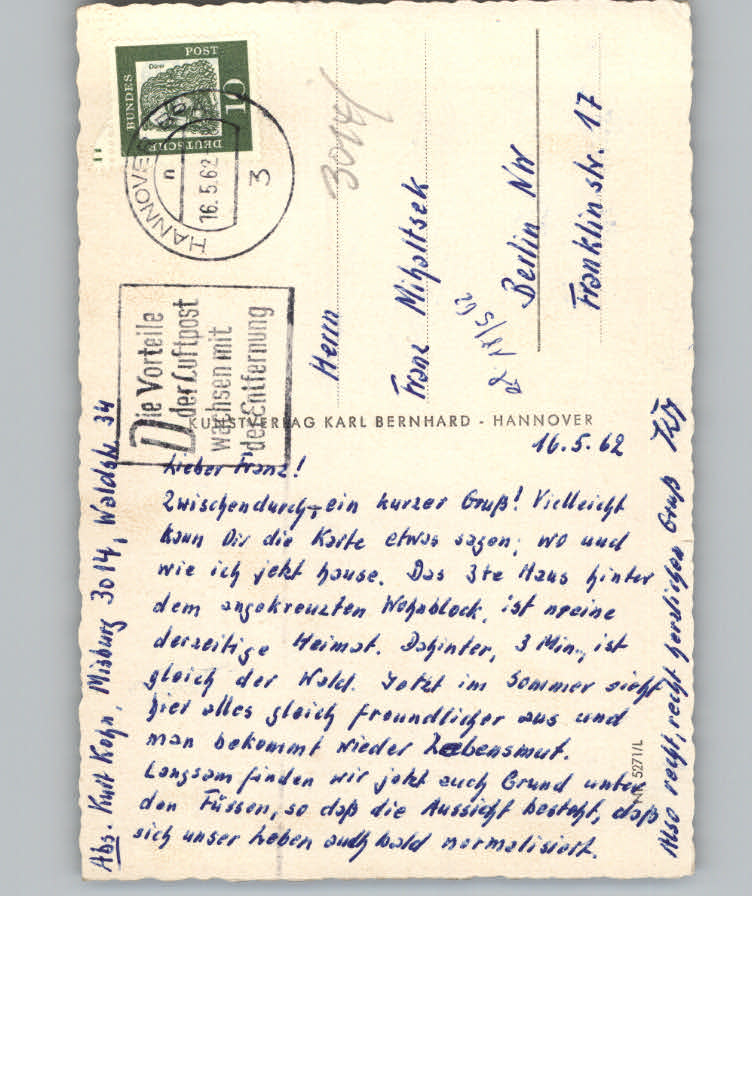 Abs. Kurt Kohn, Misburg 3014, Waldstr. 34
16.5.62
Lieber Franz!
Zwischendurch – ein kurzer Gruß! Vielleicht
kann Dir die Karte etwas sagen, wo und
wie ich jetzt hause. Das 3te Haus hinter
dem angekreuzten Wohnblock, ist meine
derzeitige Heimat. Dahinter, 3 Min., ist
gleich der Wald. Jetzt im Sommer sieht
hier alles gleich freundlicher aus und
man bekommt wieder Lebensmut.
Langsam finden wir jetzt auch Grund unter
den Füssen, so daß die Aussicht besteht, daß
sich unser Leben auch bald normalisiert.
Also recht, recht herzlichen Gruß
Nr. 5271/L
KUNSTVERLAG KARL BERNHARD - HANNOVER
DEUTSCHE
BUNDES
POST
Dürer
10
HANNOVER
16.5.62
n
3
Die Vorteile
der Luftpost
wachsen mit
der Entfernung
3014
Herrn
Franz Mihaltsek
17/5 62
Berlin NW
Franklinstr. 17